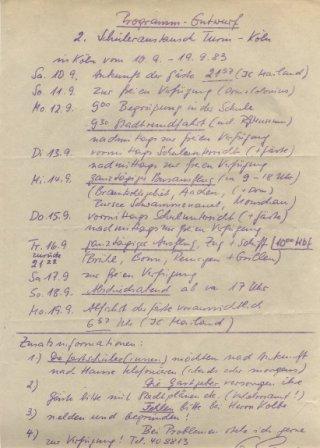 Programm-Entwurf
2. Schüleraustausch Turin - Köln
in Köln vom 10.9. - 19.9.83
Sa. 10.9. Ankunft der Gäste 21 57 (IC Mailand)
So. 11.9. zur freien Verfügung
Mo. 12.9. 9 00 Begrüßung in der Schule
9 30 Stadtrundfahrt
nachmittags zur freien Verfügung
Di. 13.9. vormittags Schulunterricht (+ Gäste)
nachmittags zur freien Verfügung
Mi. 14.9. ganztägiger Busausflug (in 9 - 18 Uhr)
(Braunkohlgebiet, Aachen,
Rursee Schwammenauel, Monschau)
Do. 15.9. vormittags Schulunterricht (+ Gäste)
nachmittags zur freien Verfügung
Fr. 16.9. ganztägiger Ausflug, Zug + Schiff
zurück (Brühl, Bonn, Remagen + Grillen)
Sa. 17.9. zur freien Verfügung
So. 18.9. Abschiedsabend ab ca. 17 Uhr
Mo. 19.9. Abfahrt der Gäste voraussichtlich
6 57 Uhr (IC Mailand)
Zusatzinformationen:
1) Die Gastschüler(innen) möchten nach Ankunft
nach Hause telefonieren (abends oder morgens)
2) Die Gastgeber versorgen ihre
Gäste bitte mit Stadtplänen
3) Fehlen bitte bei Herrn
melden und begründen!
4) Bei Problemen stehe ich gerne
zur Verfügung! Tel. 40 8813